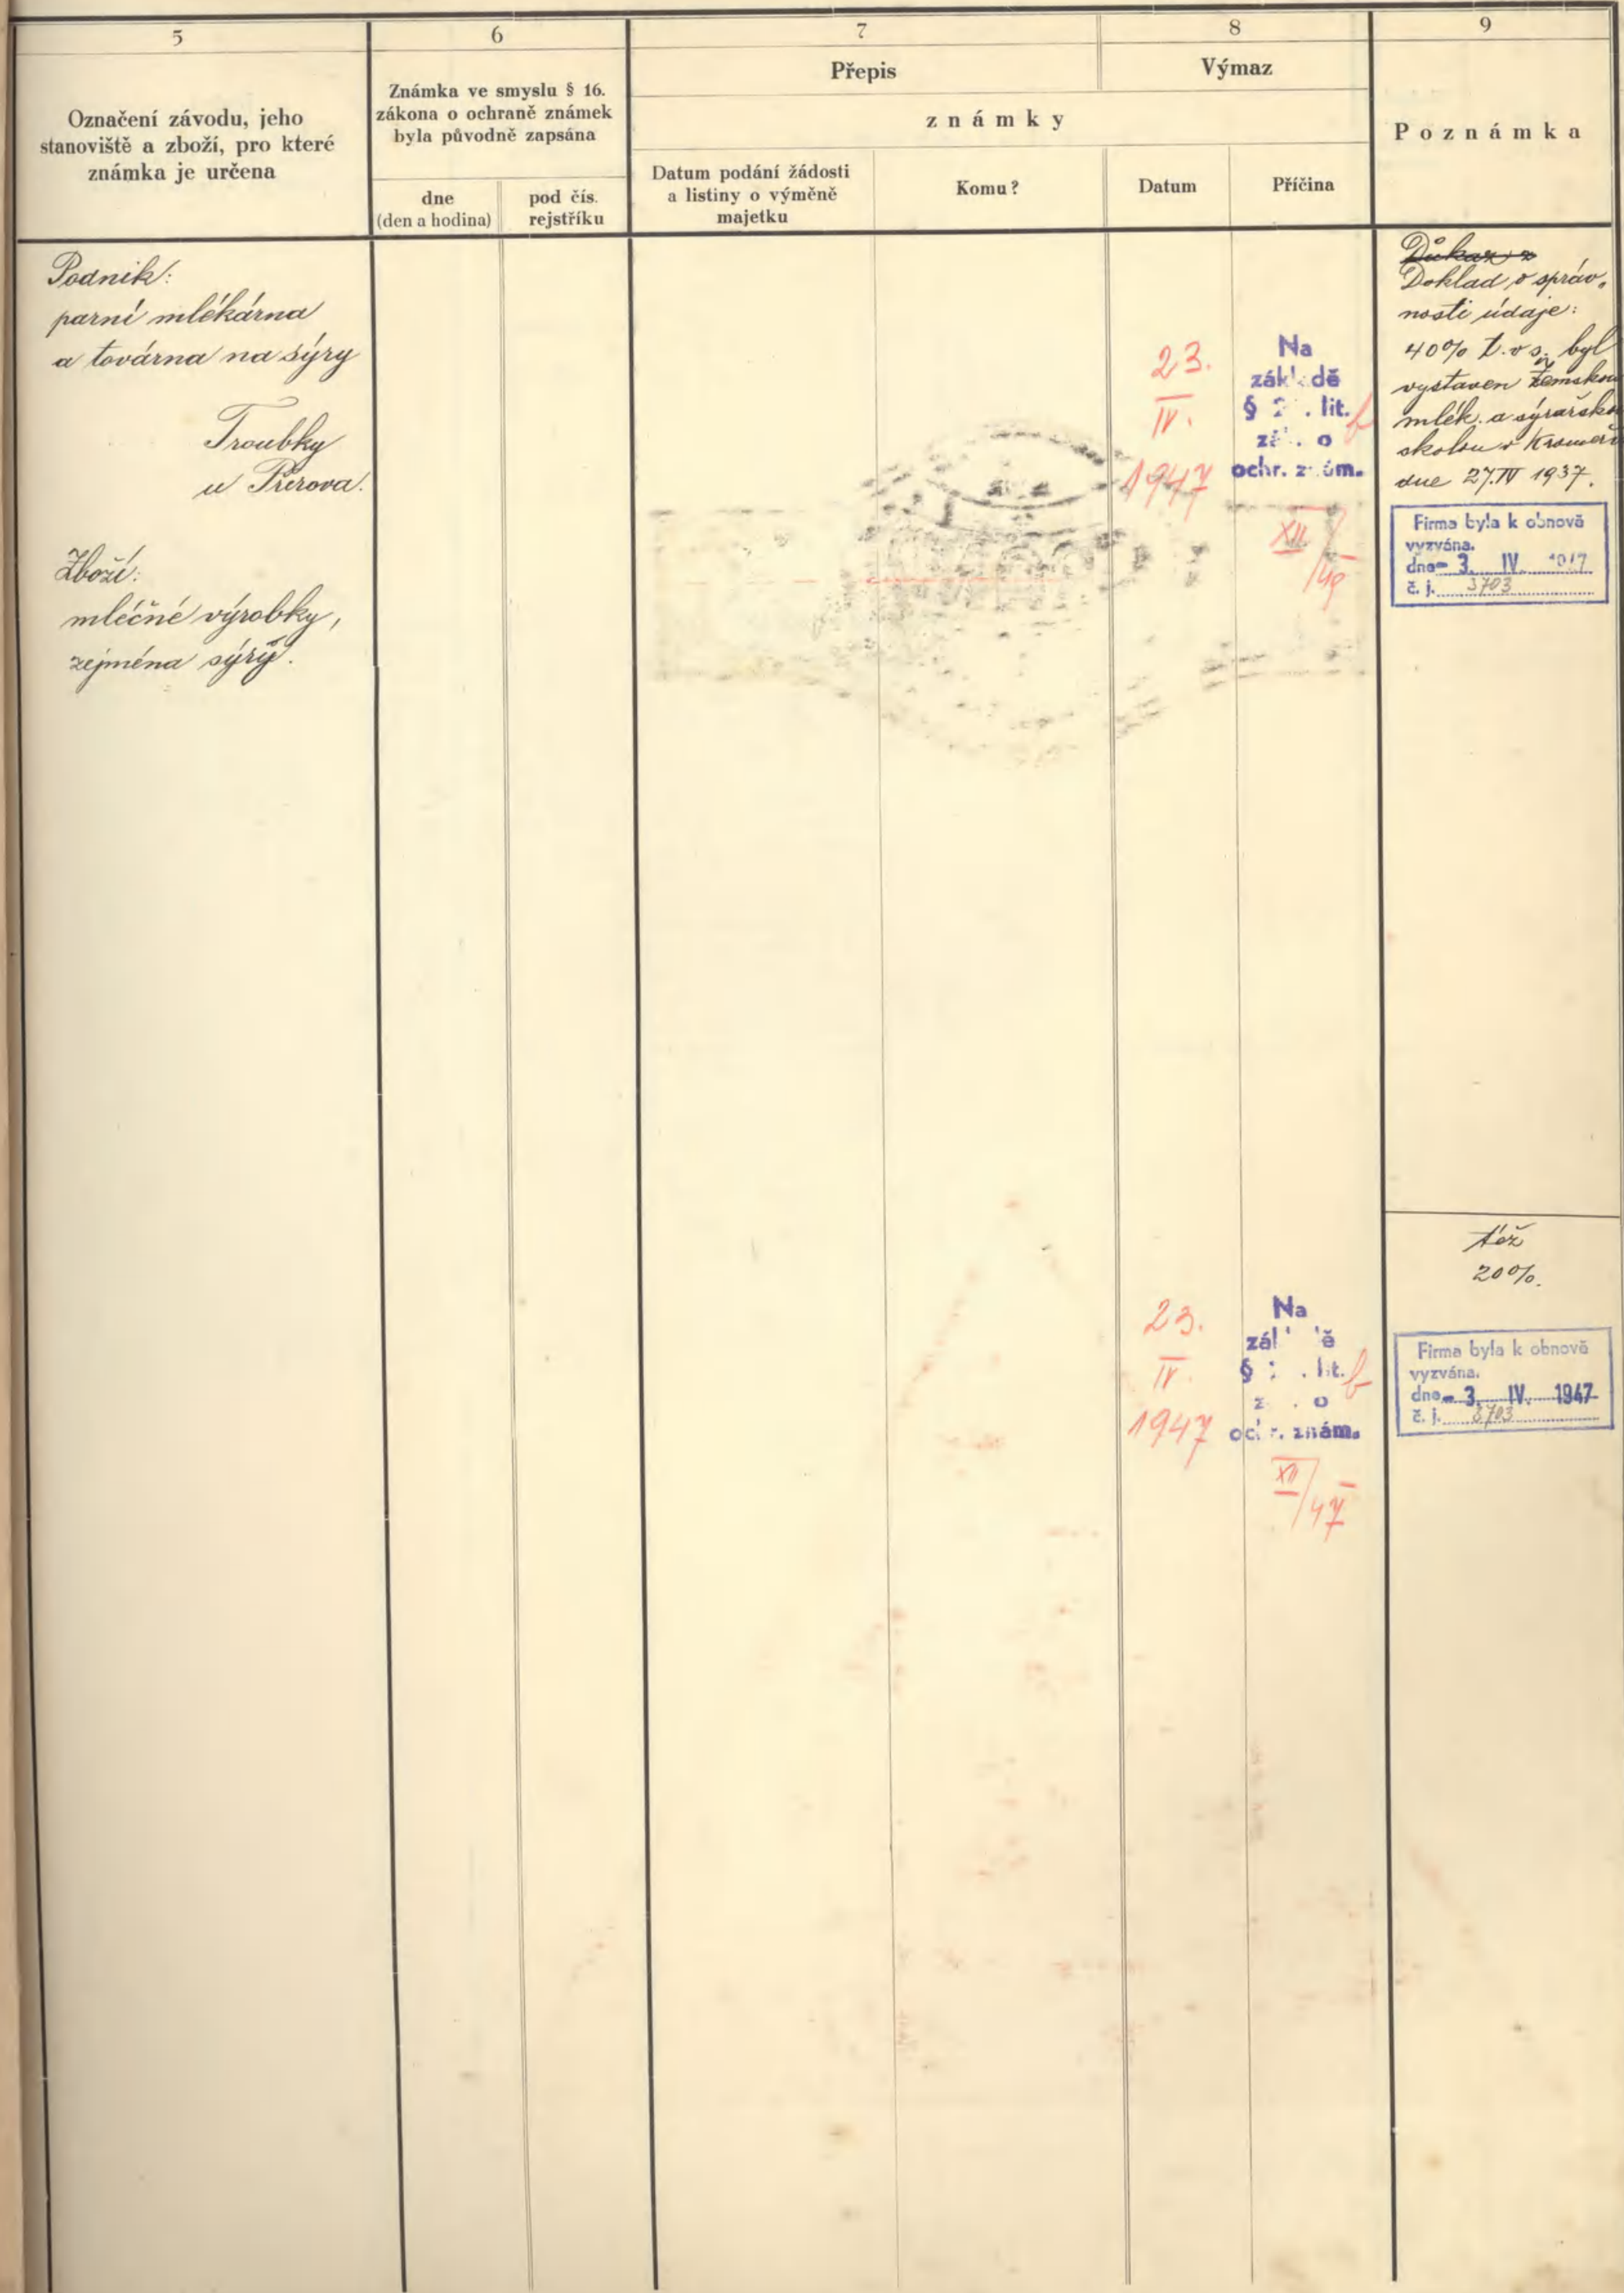 5
6
7
8
9
Označení závodu, jeho
stanoviště a zboží, pro které
známka je určena
Známka ve smyslu § 16.
zákona o ochraně známek
byla původně zapsána
dne
(den a hodina)
pod čís.
rejstříku
Přepis
Výmaz
známky
Datum podání žádosti
a listiny o výměně
majetku
Komu?
Datum
Příčina
Poznámka
Podnik:
parní mlékárna
a továrna na sýry
Troubky
u Přerova.
Zboží:
mléčné výrobky,
zejména sýry.
23.
IV.
1947
Na
základě
§ lit. b
o
ochr. znám.
XII
Důkaz
Doklad o správ-
nosti údaje:
40% t. v s. byl
vystaven zemskou
mlék. a sýrařskou
školou v
dne 27.IV 1937.
Firma byla k obnově
vyzvána.
dne - 3. IV. 1947
č. j. 3703
též
20%.
23.
IV.
1947
Na
základě
§ lit. b
o
ochr. znám.
XII/47
Firma byla k obnově
vyzvána.
dne - 3. IV. 1947
č. j. 3703